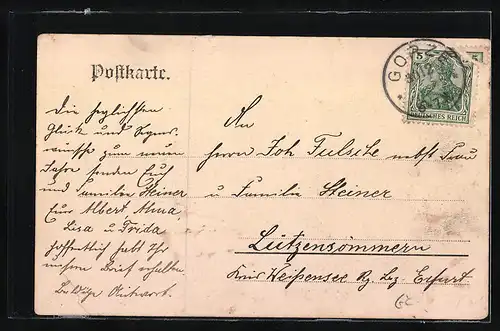 Postkarte.
Die herzlichsten
Glück und Segens-
wünsche zum neuen
Jahre senden Euch
und Familie Steiner
Eure Albert Anna
Lisa u Frida
hoffentlich habt Ihr
unsern Brief erhalten.
Baldige Antwort.
GORZE
5
DEUTSCHES REICH
An
Herrn Joh nebst Frau
u Familie Steiner
Lützensömmern
Kreis Weißensee Rg. Bez. Erfurt